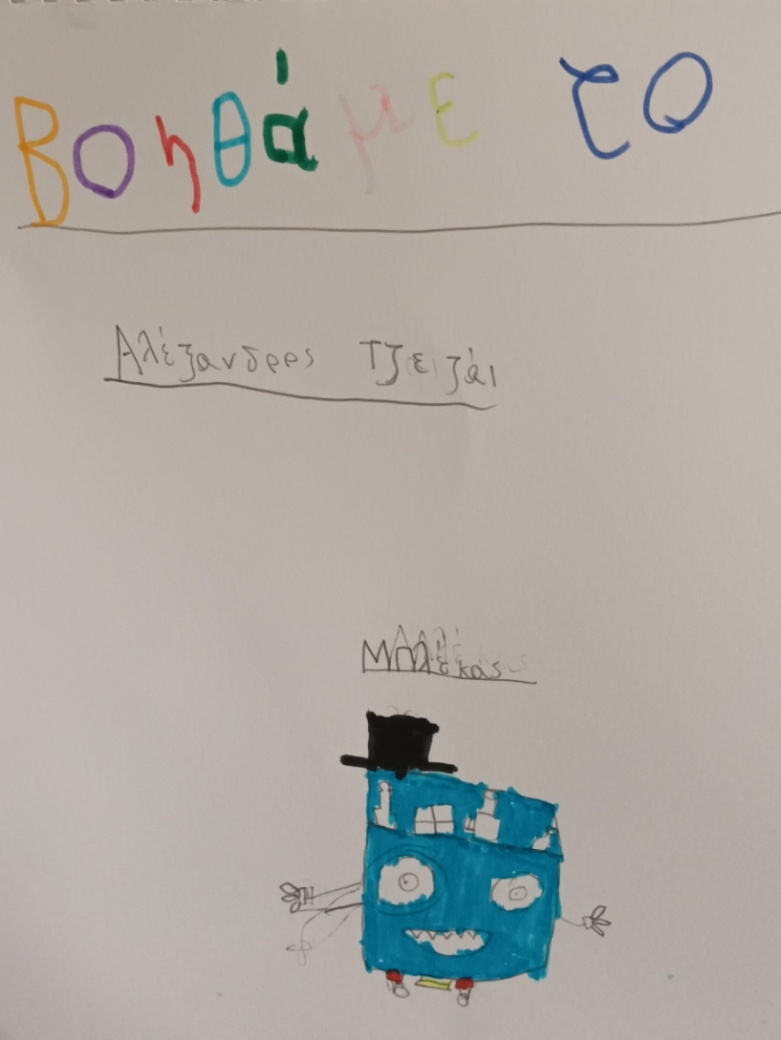 Βοηθάμε το
Αλέξανδρος Τζειζάι
Μπλέκας